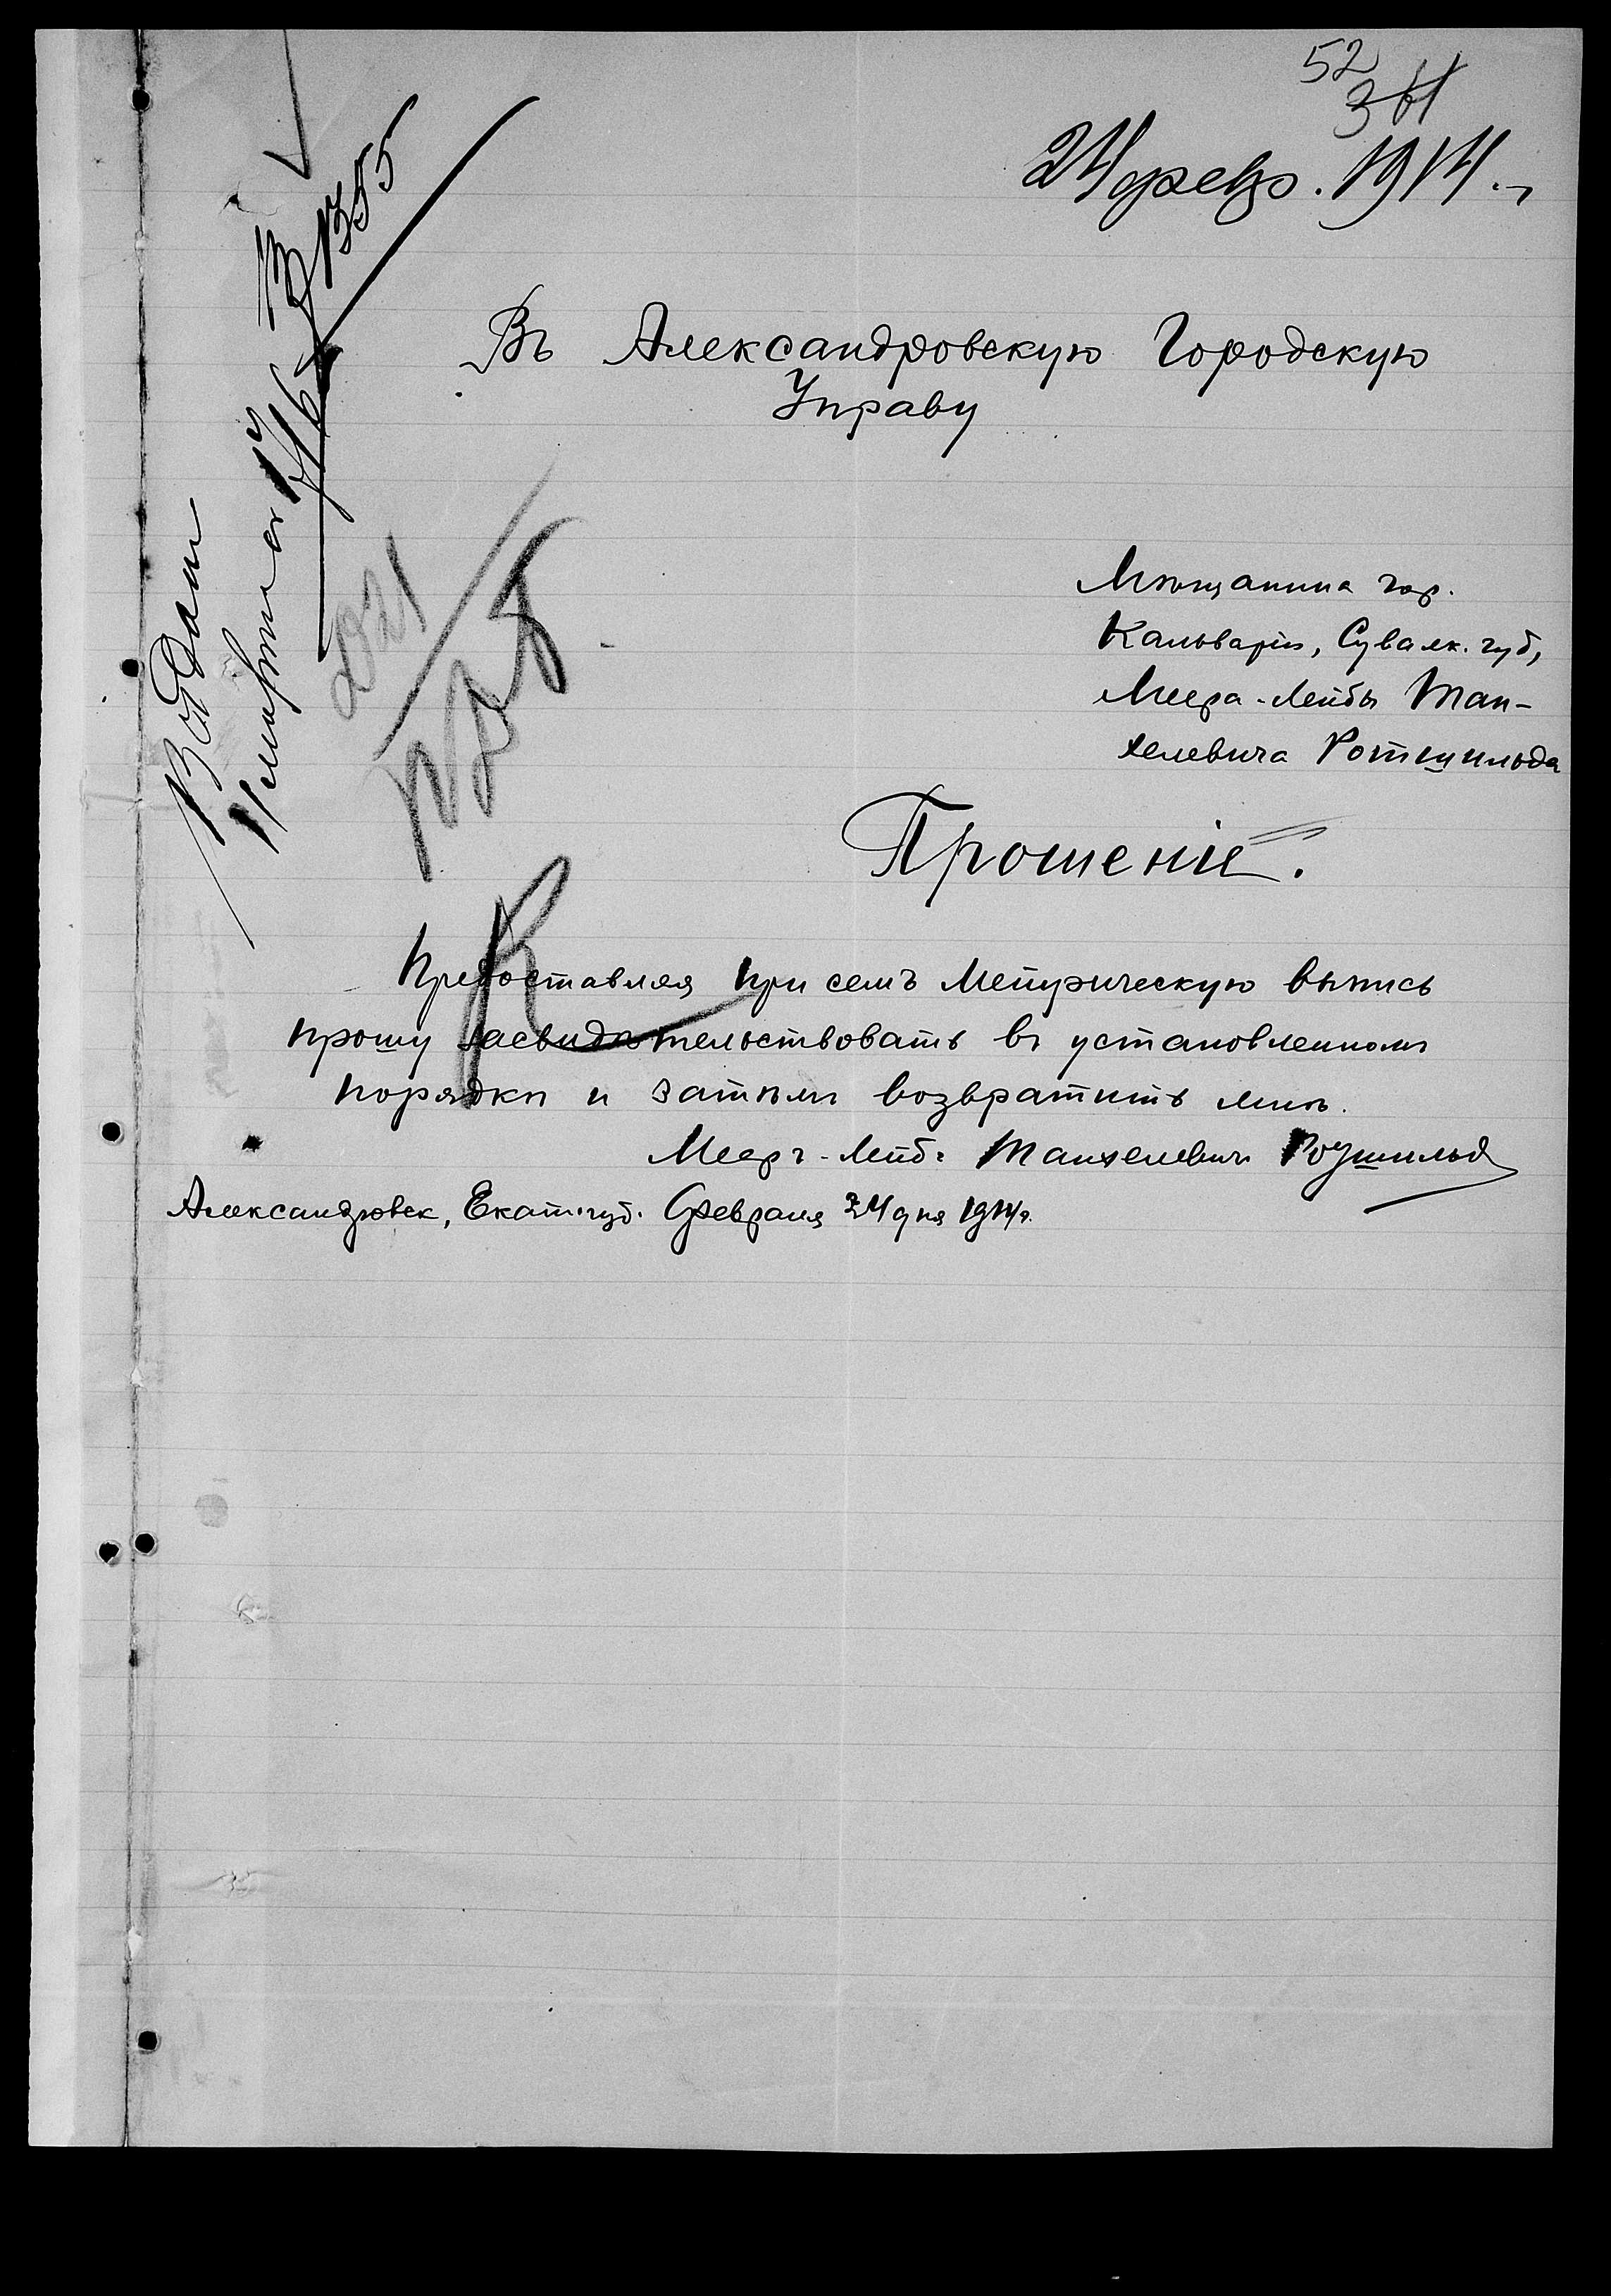 52
24 февр. 1914 г.
Въ Александровскую Городскую
Управу
Мѣщанина гор.
Кальваріи, Сувалк. губ,
Меера-Лейбы Тан-
хелевича Ротшильда
Прошеніе.
Предоставляя при семъ метрическую выпись
прошу засвидѣтельствовать въ установленномъ
порядкѣ и затѣмъ возвратить мнѣ.
Мееръ-Лейб. Танхелевичъ Ротшильд
Александровск, Екат. губ. Февраля 24 дня 1914 г.
2021
№ 1355
Марта